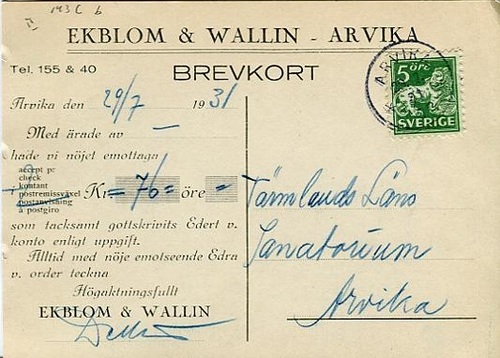 193 C b
EKBLOM & WALLIN - ARVIKA
Tel. 155 & 40
BREVKORT
ARVIKA
5 öre
SVERIGE
Arvika den 29/7 1931
Med ärade av —
hade vi nöjet emottaga
accept pr
check
kontant
postremissväxel
postanvisning
å postgiro
Kr = 76 = öre =
som tacksamt gottskrivits Edert v.
konto enligt uppgift.
Alltid med nöje emotseende Edra
v. order teckna
Högaktningsfullt
EKBLOM & WALLIN
Värmlands Läns
Sanatorium
Arvika